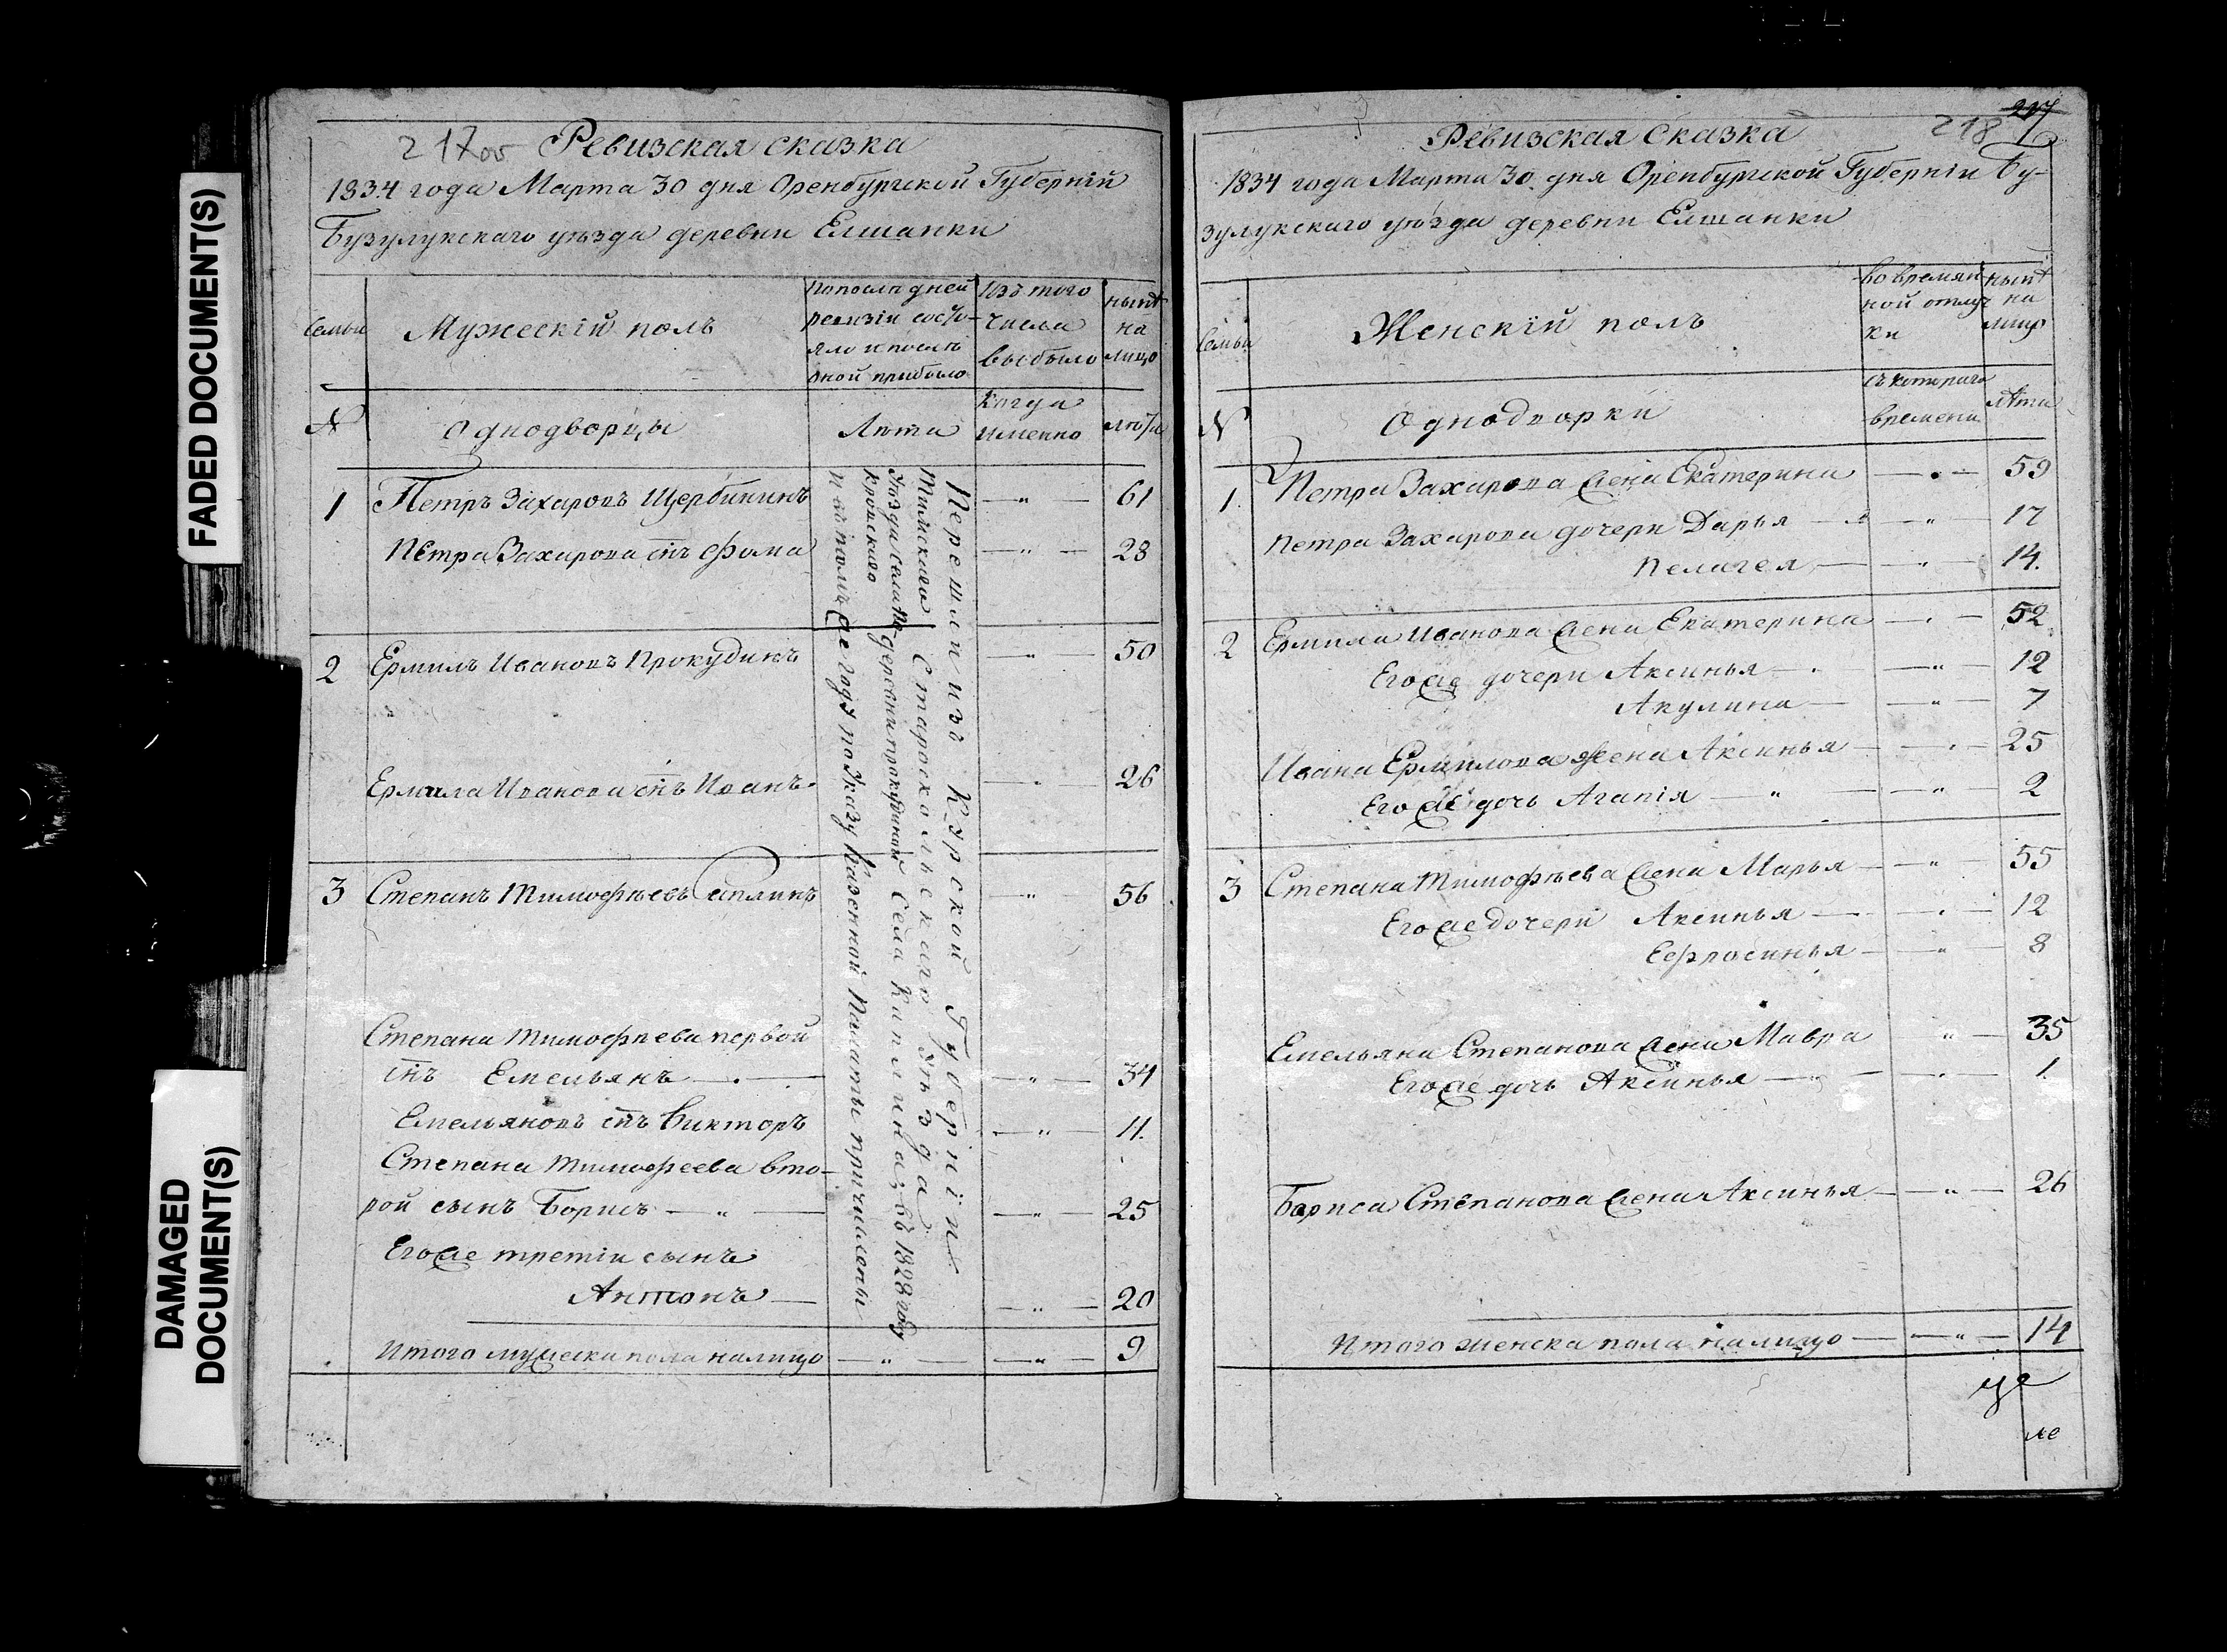 FADED DOCUMENT(S)
DAMAGED
DOCUMENT(S)
217об Ревизская сказка
1834 года Марта 30 дня Оренбургской Губерніи
Бузулукскаго уѣзда деревни Елшанки
Семьи
Мужескій полъ
По последней
ревизіи состо-
яло и после
оной прибыло
Изъ того
числа
выбыло
нынѣ
на
лицо
№
Однодворцы
Лѣта
Когда
именно
лѣта
1 Петръ Захаровъ Щербининъ — „ — 61
Петра Захарова сынъ Фома — „ — 28
2 Ермилъ Ивановъ Прокудинъ — „ — 50
Ермила Иванова снъ Иванъ — „ — 26
3 Степанъ Тимофѣевъ Каплинъ — „ — 56
Степана Тимофѣева первой
снъ Емельянъ — „ — 34
Емельяновъ снъ Викторъ — „ — 11.
Степана Тимофеева вто-
рой сынъ Борисъ — „ — 25
Егоже третіи сынъ
Антонъ — „ — 20
Итого мужеска пола налицо — „ — — „ — 9
Перешли изъ Курской Губерніи
Тимскаго Старооскольскаго уѣзда
уѣзда села По деревни прокудиной села Каплина, въ 1828 году
кровскаго
по Указу Казенной Палаты причислены
217
218
Ревизская Сказка
1834 года Марта 30. дня Оренбургской Губерніи Бу-
зулукскаго уѣзда деревни Елшанки
Семьи
Женскій полъ
Во времян-
ной отлуч
ки
нынѣ
на
лицо
№
Однодворки
съ котораго
времени
лѣта
1. Петра Захарова жена Екатерина — „ — 59
Петра Захарова дочери Дарья — „ — 17
Пелагея — „ — 14.
2 Ермила Иванова жена Екатерина — „ — 52
Егоже дочери Аксинья — „ — 12
Акулина — „ — 7
Ивана Ермилова жена Аксинья — „ — 25
Егоже дочь Агапія — „ — „ — 2
3 Степана Тимофѣева жена Марья — „ — 55
Егоже дочери Аксинья — „ — 12
Ефросинья — „ — 8
Емельяна Степанова жена Мавра „ — 35
Егоже дочь Аксинья — „ — 1.
Бориса Степанова жена Аксинья — „ — 26
Итого женска пола налицо — „ — 14